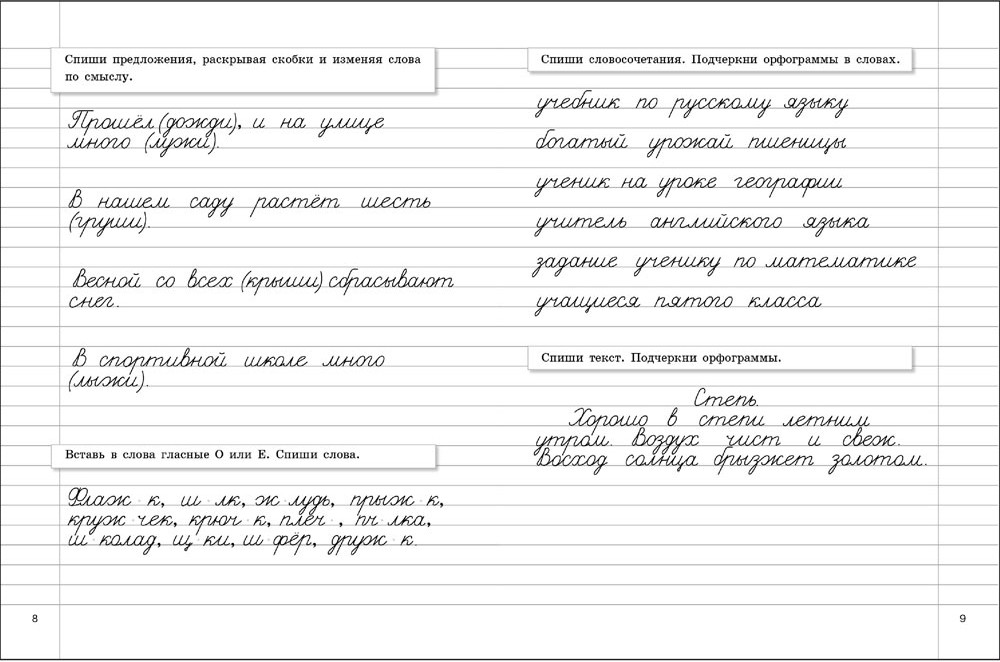 Спиши предложения, раскрывая скобки и изменяя слова
по смыслу.
Прошёл (дожди), и на улице
много (лужи).
В нашем саду растёт шесть
(груши).
Весной со всех (крыши) сбрасывают
снег.
В спортивной школе много
(лыжи).
Вставь в слова гласные О или Е. Спиши слова.
Флаж · к, ш · лк, ж · лудь, прыж · к,
круж · чек, крюч · к, плеч · , пч · лка,
ш · колад, щ · ки, ш · фёр, друж · к.
8
Спиши словосочетания. Подчеркни орфограммы в словах.
учебник по русскому языку
богатый урожай пшеницы
ученик на уроке географии
учитель английского языка
задание ученику по математике
учащиеся пятого класса
Спиши текст. Подчеркни орфограммы.
Степь.
Хорошо в степи летним
утром. Воздух чист и свеж.
Восход солнца брызжет золотом.
9